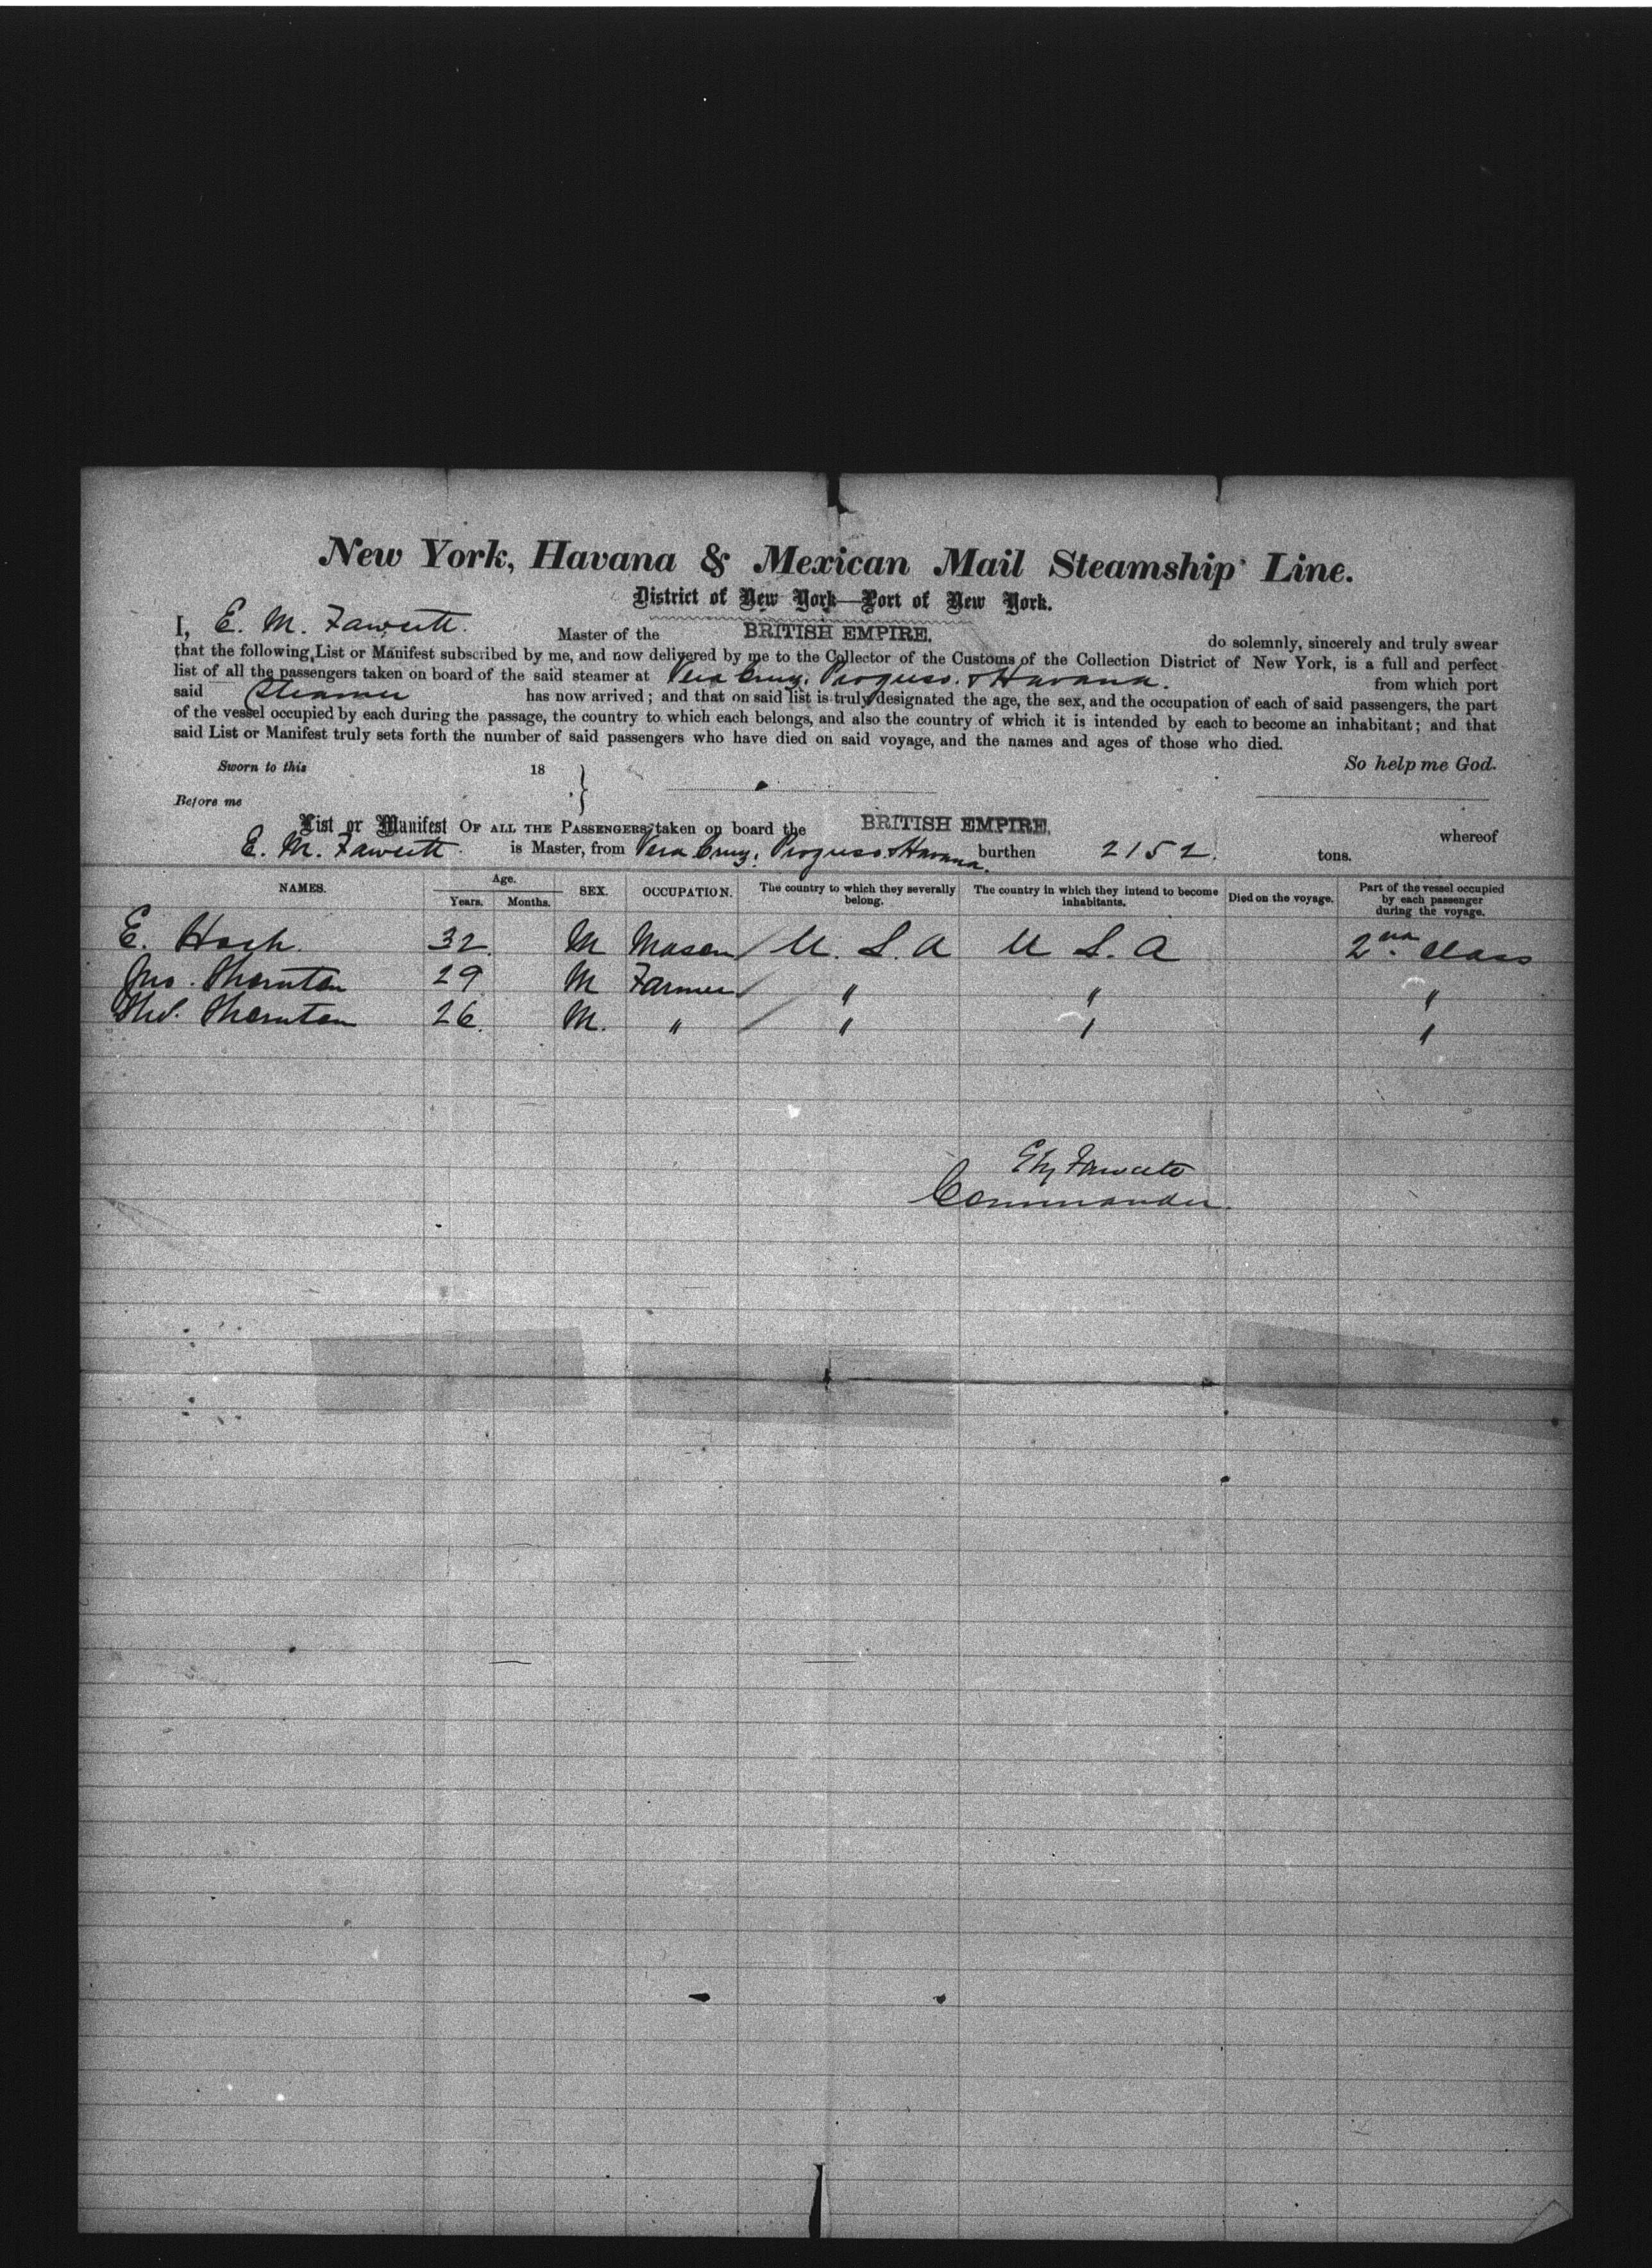 New York, Havana & Mexican Mail Steamship Line.
District of New York—Port of New York.
I, E. M. Fawcett. Master of the BRITISH EMPIRE, do solemnly, sincerely and truly swear
that the following List or Manifest subscribed by me, and now delivered by me to the Collector of the Customs of the Collection District of New York, is a full and perfect
list of all the passengers taken on board of the said steamer at Vera Cruz, Progreso. & Havana. from which port
said Steamer has now arrived; and that on said list is truly designated the age, the sex, and the occupation of each of said passengers, the part
of the vessel occupied by each during the passage, the country to which each belongs, and also the country of which it is intended by each to become an inhabitant; and that
said List or Manifest truly sets forth the number of said passengers who have died on said voyage, and the names and ages of those who died.
Sworn to this 18 So help me God.
Before me
List or Manifest OF ALL THE PASSENGERS taken on board the BRITISH EMPIRE, whereof
E. M. Fawcett. is Master, from Vera Cruz, Progreso. & Havana. burthen 2152. tons.
NAMES. Age. Years. Months. SEX. OCCUPATION. The country to which they severally belong. The country in which they intend to become inhabitants. Died on the voyage. Part of the vessel occupied by each passenger during the voyage.
E. 32 M Mason U. S. A U S. A 2nd Class
Jno. Thornton 29 M Farmer " " "
Thornton 26. M. " " " "
Fawcett
Commander.